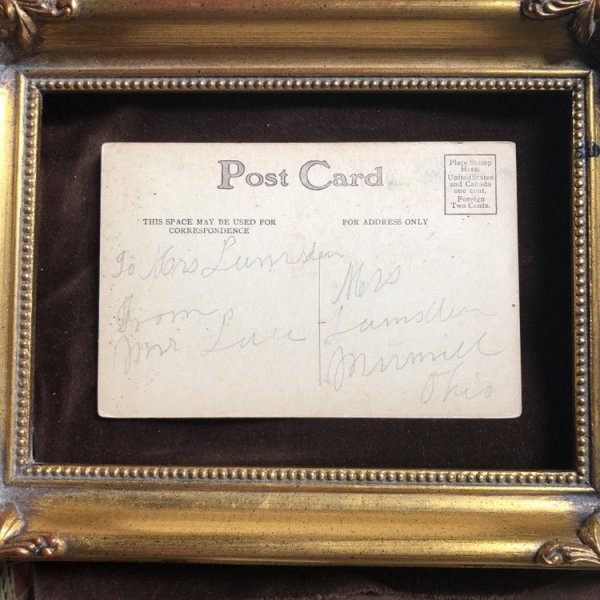 Post Card
Place Stamp
Here.
United States
and Canada
one cent.
Foreign
Two Cents.
THIS SPACE MAY BE USED FOR
CORRESPONDENCE
FOR ADDRESS ONLY
To Mrs Lumsden
From
Mr
Mrs
Lumsden
Ohio